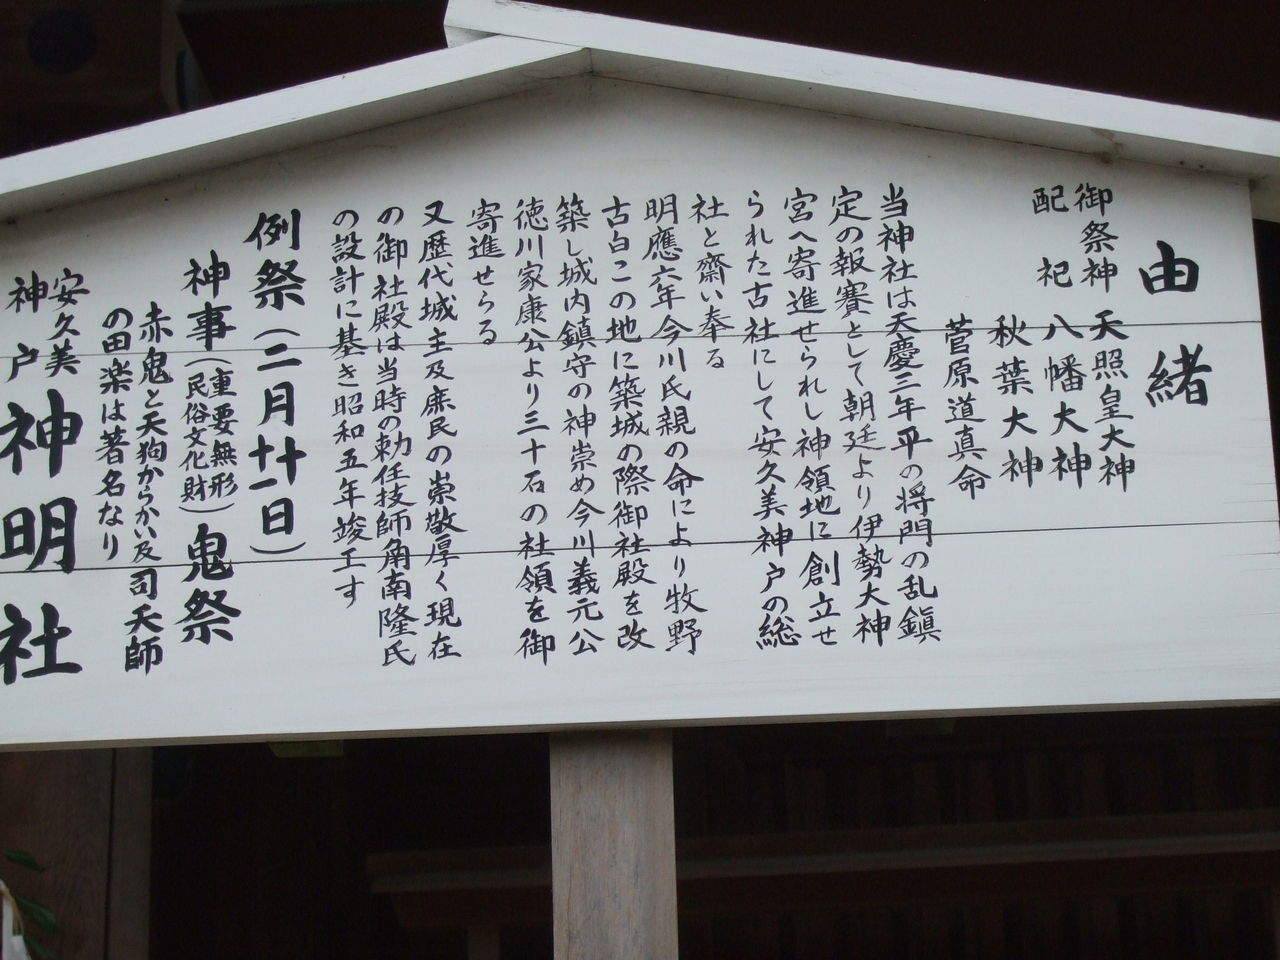 由緒
御祭神 天照皇大神
配祀 八幡大神
秋葉大神
菅原道真命
当神社は天慶三年平の将門の乱鎭
定の報賽として朝廷より伊勢大神
宮へ寄進せられし神領地に創立せ
られた古社にして安久美神戸の総
社と齋い奉る
明應六年今川氏親の命により牧野
古白この地に築城の際御社殿を改
築し城内鎮守の神崇め今川義元公
徳川家康公より三十石の社領を御
寄進せらる
又歴代城主及庶民の崇敬厚く現在
の御社殿は当時の勅任技師角南隆氏
の設計に基き昭和五年竣工す
例祭(二月十十一日)
神事(重要無形民俗文化財)鬼祭
赤鬼と天狗からかい及司天師
の田楽は著名なり
安久美
神戸神明社